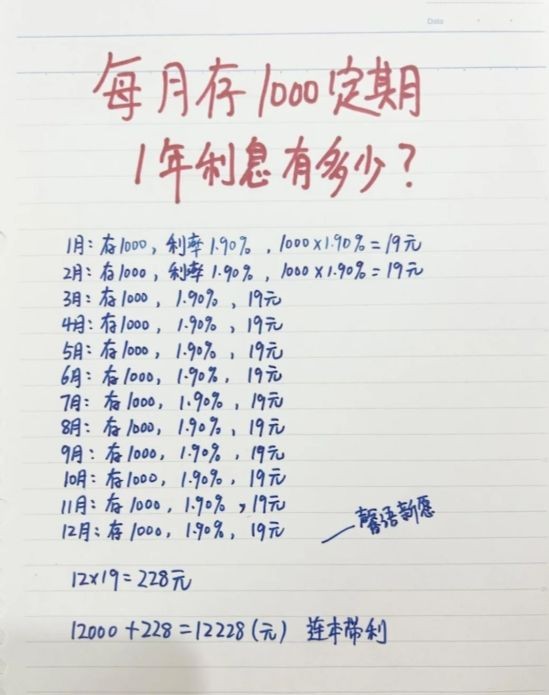 Date
每月存1000定期
1年利息有多少?
1月:存1000,利率1.90%,1000×1.90%=19元
2月:存1000,利率1.90%,1000×1.90%=19元
3月:存1000,1.90%,19元
4月:存1000,1.90%,19元
5月:存1000,1.90%,19元
6月:存1000,1.90%,19元
7月:存1000,1.90%,19元
8月:存1000,1.90%,19元
9月:存1000,1.90%,19元
10月:存1000,1.90%,19元
11月:存1000,1.90%,19元
12月:存1000,1.90%,19元
馨语新愿
12×19=228元
12000+228=12228(元) 连本带利